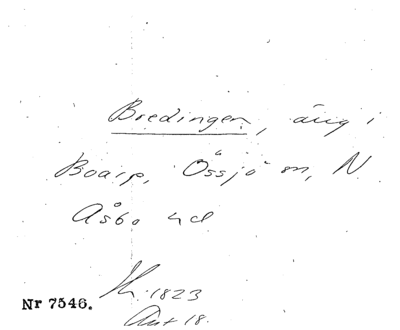 Bredingen, äng i
Boarp, Össjö sn, N
Åsbo hd
Sk. 1823
Akt 18.
Nr 7546.